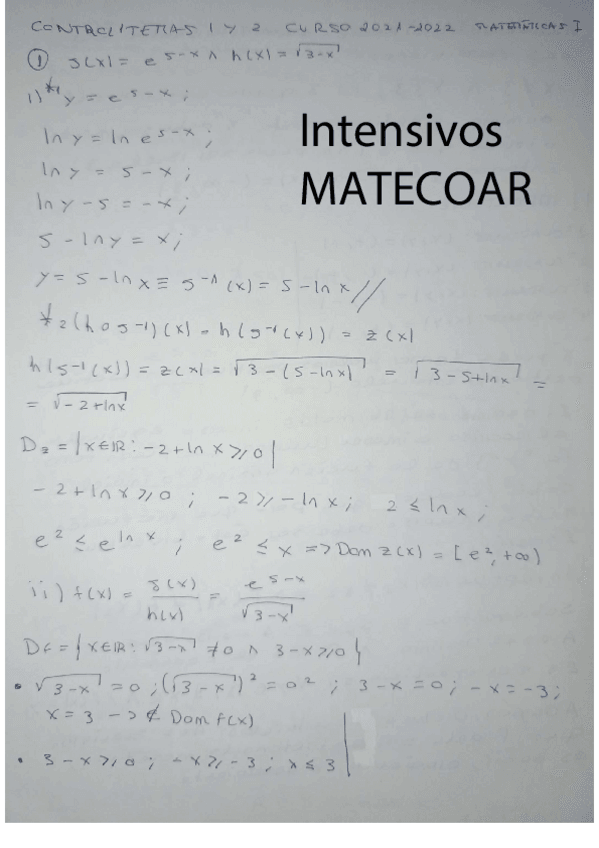 CONTROL 1 TEMAS 1 Y 2 CURSO 2021-2022 MATEMÁTICAS I
① g(x) = e^5-x ∧ h(x) = √3-x
i) *1 y = e^5-x ;
Intensivos
MATECOAR
ln y = ln e^5-x ;
ln y = 5 - x ;
ln y - 5 = -x ;
5 - ln y = x ;
y = 5 - ln x ≡ g^-1 (x) = 5 - ln x //
*2 (h o g^-1)(x) = h(g^-1(x)) = z(x)
h(g^-1(x)) = z(x) = √3 - (5 - ln x) = √3 - 5 + ln x =
= √-2 + ln x
Dz = {x ∈ IR : -2 + ln x ≥ 0}
-2 + ln x ≥ 0 ; -2 ≥ -ln x ; 2 ≤ ln x ;
e^2 ≤ e^ln x ; e^2 ≤ x => Dom z(x) = [e^2, +∞)
ii) f(x) = g(x)/h(x) = e^5-x/√3-x
Df = {x ∈ IR : √3-x ≠ 0 ∧ 3-x ≥ 0}
• √3-x = 0 ; (√3-x)^2 = 0^2 ; 3-x = 0 ; -x = -3 ;
x = 3 -> ∉ Dom f(x)
• 3-x ≥ 0 ; -x ≥ -3 ; x ≤ 3